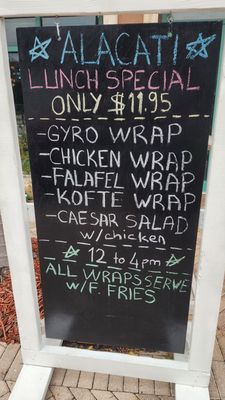 ALACATI
LUNCH SPECIAL
ONLY $11.95
-GYRO WRAP
-CHICKEN WRAP
-FALAFEL WRAP
-KOFTE WRAP
-CAESAR SALAD
w/chicken
12 to 4pm
ALL WRAPS SERVE
W/F. FRIES